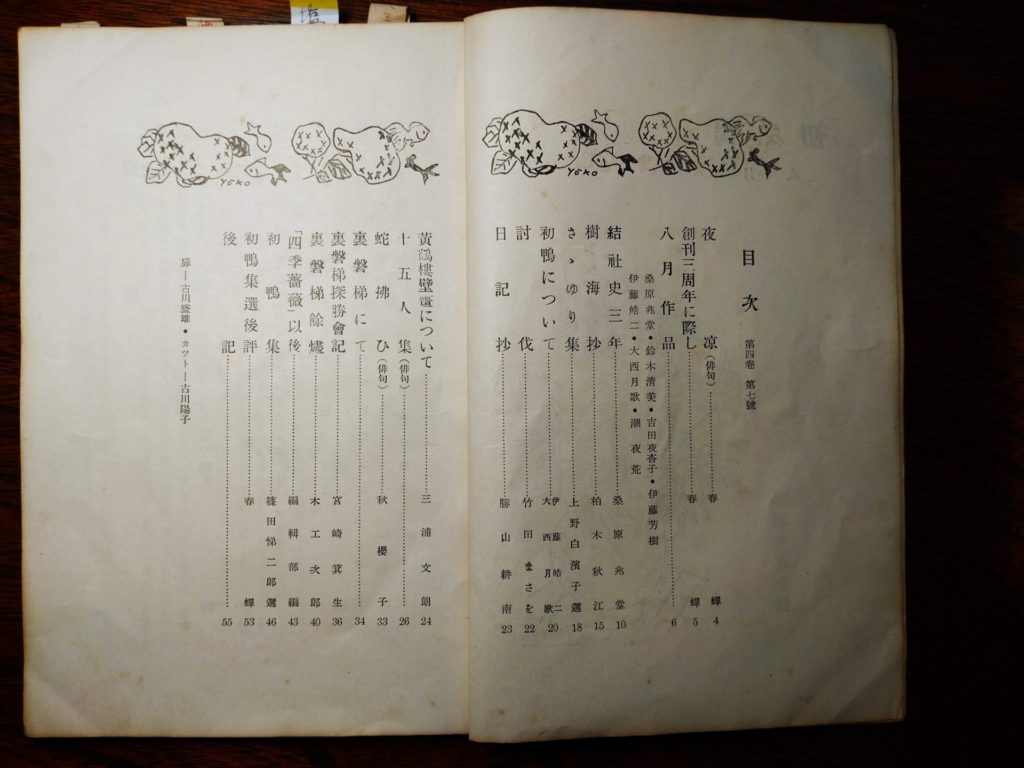 目次 第四卷 第七號
夜凉(俳句)……春蟬 4
創刊三周年に際し……春蟬 5
八月作品……6
桑原兆堂・鈴木清美・吉田夜杏子・伊藤芳樹
伊藤皓二・大西月歌・潮夜荒
結社史三年……桑原兆堂 10
樹海抄……柏木秋江 15
さゝゆり集……上野白濱子選 18
初鴨について……伊藤皓二 大西月歌 20
討伐……竹田まさを 22
日記抄……勝山耕南 23
YOKO
YOKO
黃鶴樓壁畫について……三浦文朗 24
十五人集(俳句)……26
蛇拂ひ(俳句)……秋櫻子 33
裏磐梯にて……34
裏磐梯探勝會記……宮崎箕生 36
裏磐梯餘燼……木工次郎 40
「四季薔薇」以後……編輯部編 43
初鴨集……篠田悌二郎選 46
初鴨集選後評……春蟬 53
後記……55
扉―古川盛雄・カット―古川陽子
塩